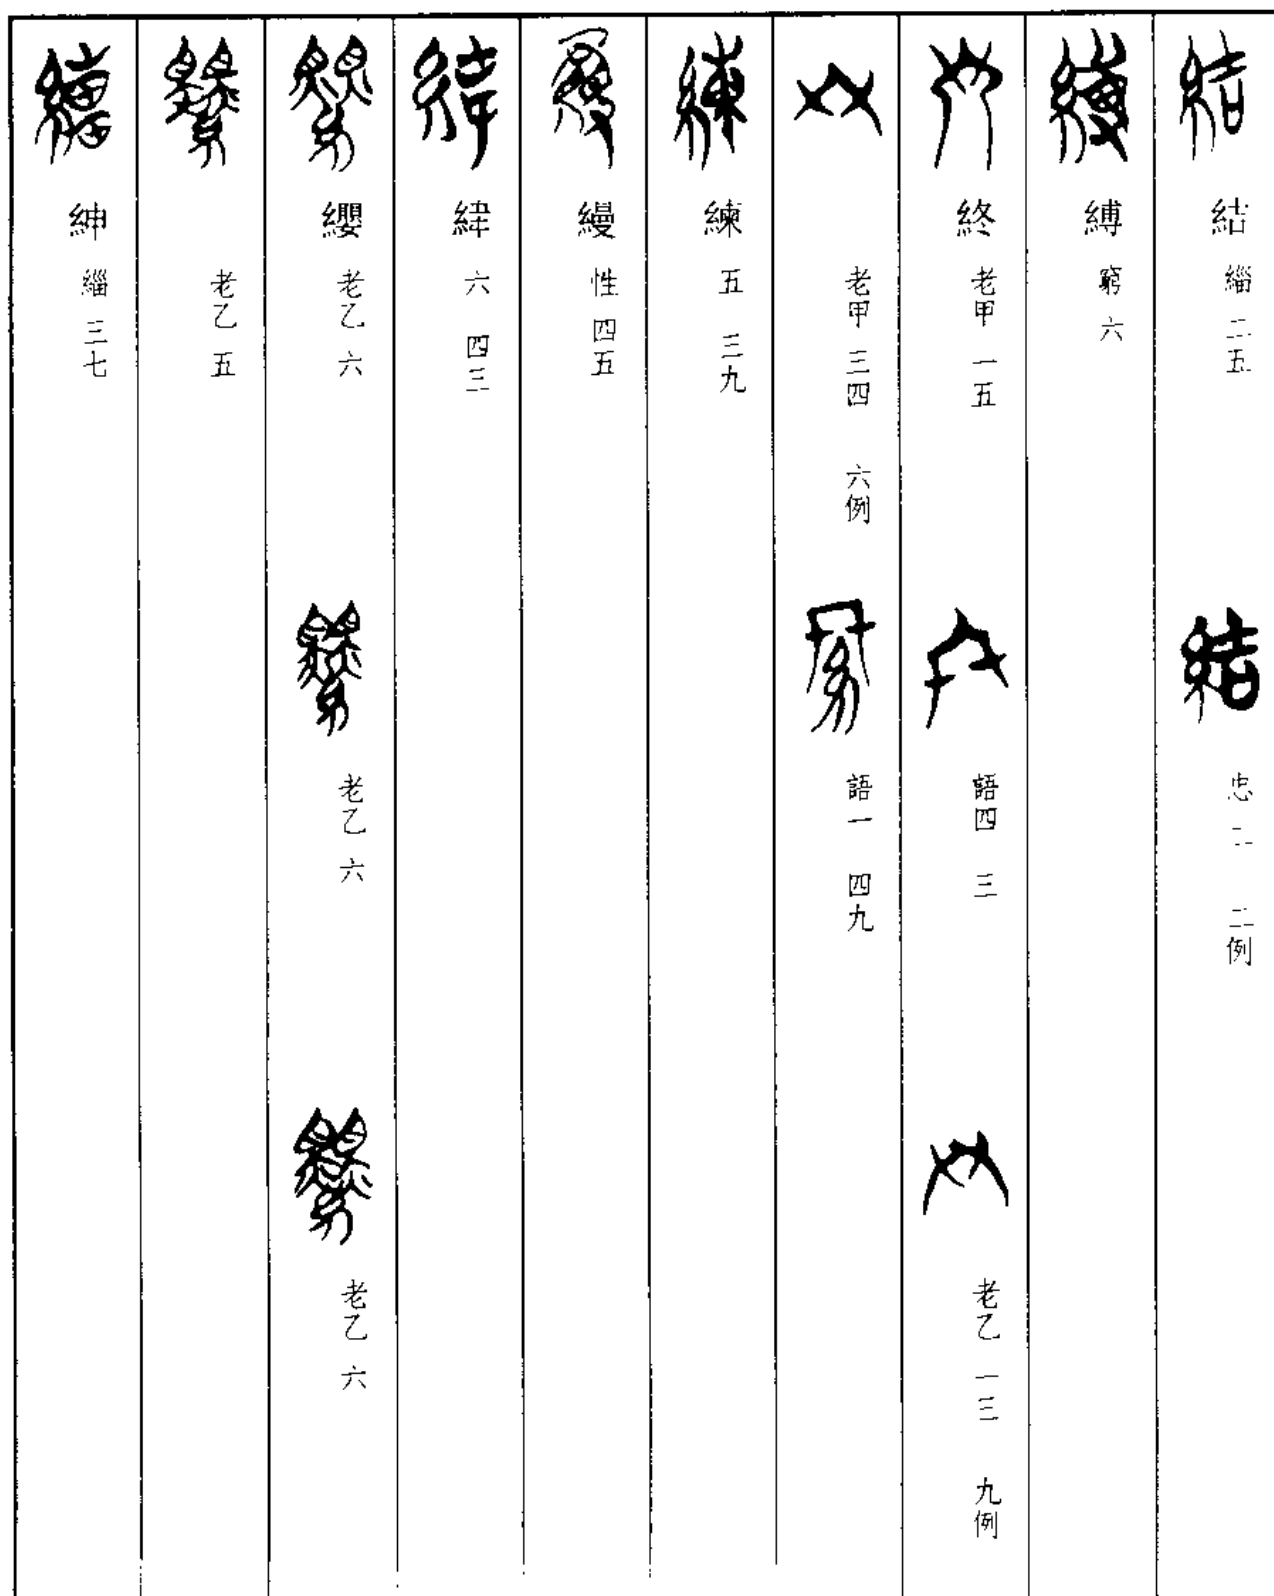 結 緇 二五
忠 二 二例
縛 窮 六
終 老甲 一五
語四 三
老乙 一三 九例
老甲 三四 六例
語一 四九
練 五 三九
縵 性 四五
緯 六 四三
纓 老乙 六
老乙 六
老乙 六
老乙 五
紳 緇 三七